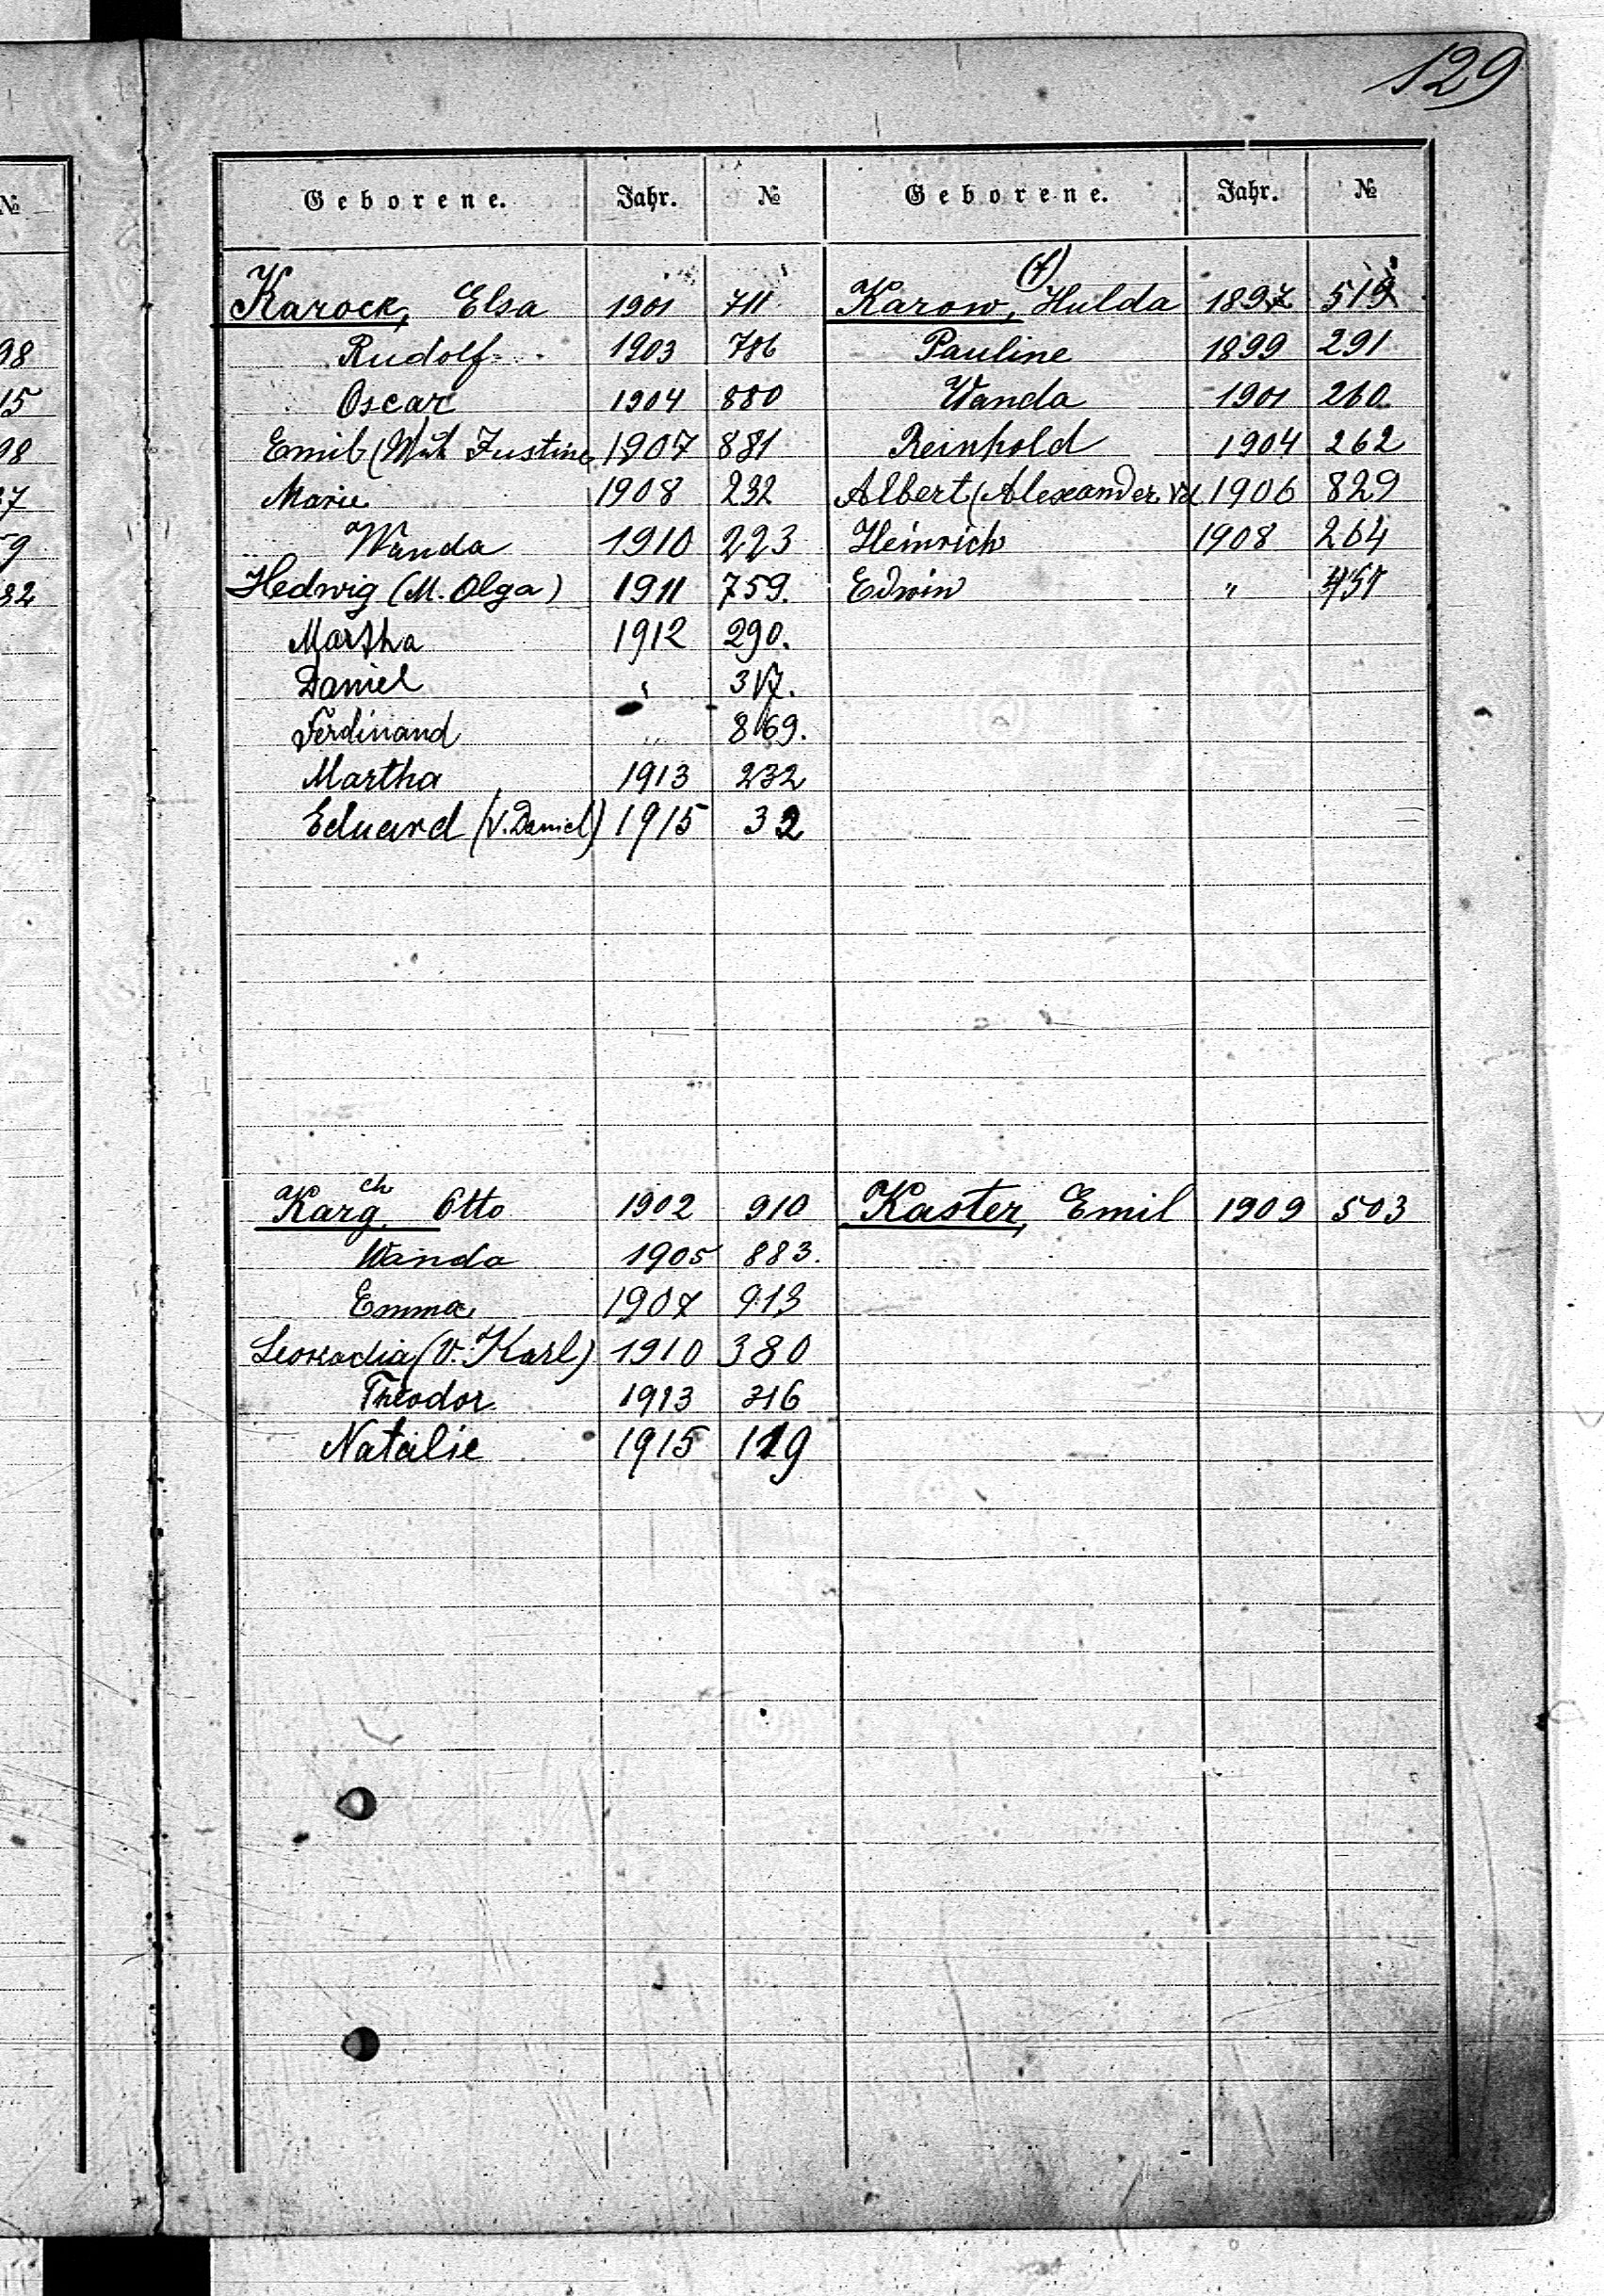 129
Geborene. Jahr. №
Karock, Elsa 1901 711
Rudolf 1903 786
Oscar 1904 880
Emil (Mut Justine 1907 881
Marie 1908 232
Wanda 1910 223
Hedwig (M. Olga) 1911 759.
Martha 1912 290.
Daniel " 317.
Ferdinand " 869.
Martha 1913 232
Eduard (V. Daniel) 1915 32
Karg ch Otto 1902 910
Wanda 1905 883.
Emma 1907 913
Leokadia (V. Karl) 1910 380
Theodor 1913 316
Natalie 1915 119
Geborene. Jahr. №
(f)
Karow, Hulda 1897 519
Pauline 1899 291
Wanda 1901 260
Reinhold 1904 262
Albert (Alexander Vd 1906 829
Heinrich 1908 264
Edwin "
Kaster, Emil 1909 503
№
98
15
98
37
59
32